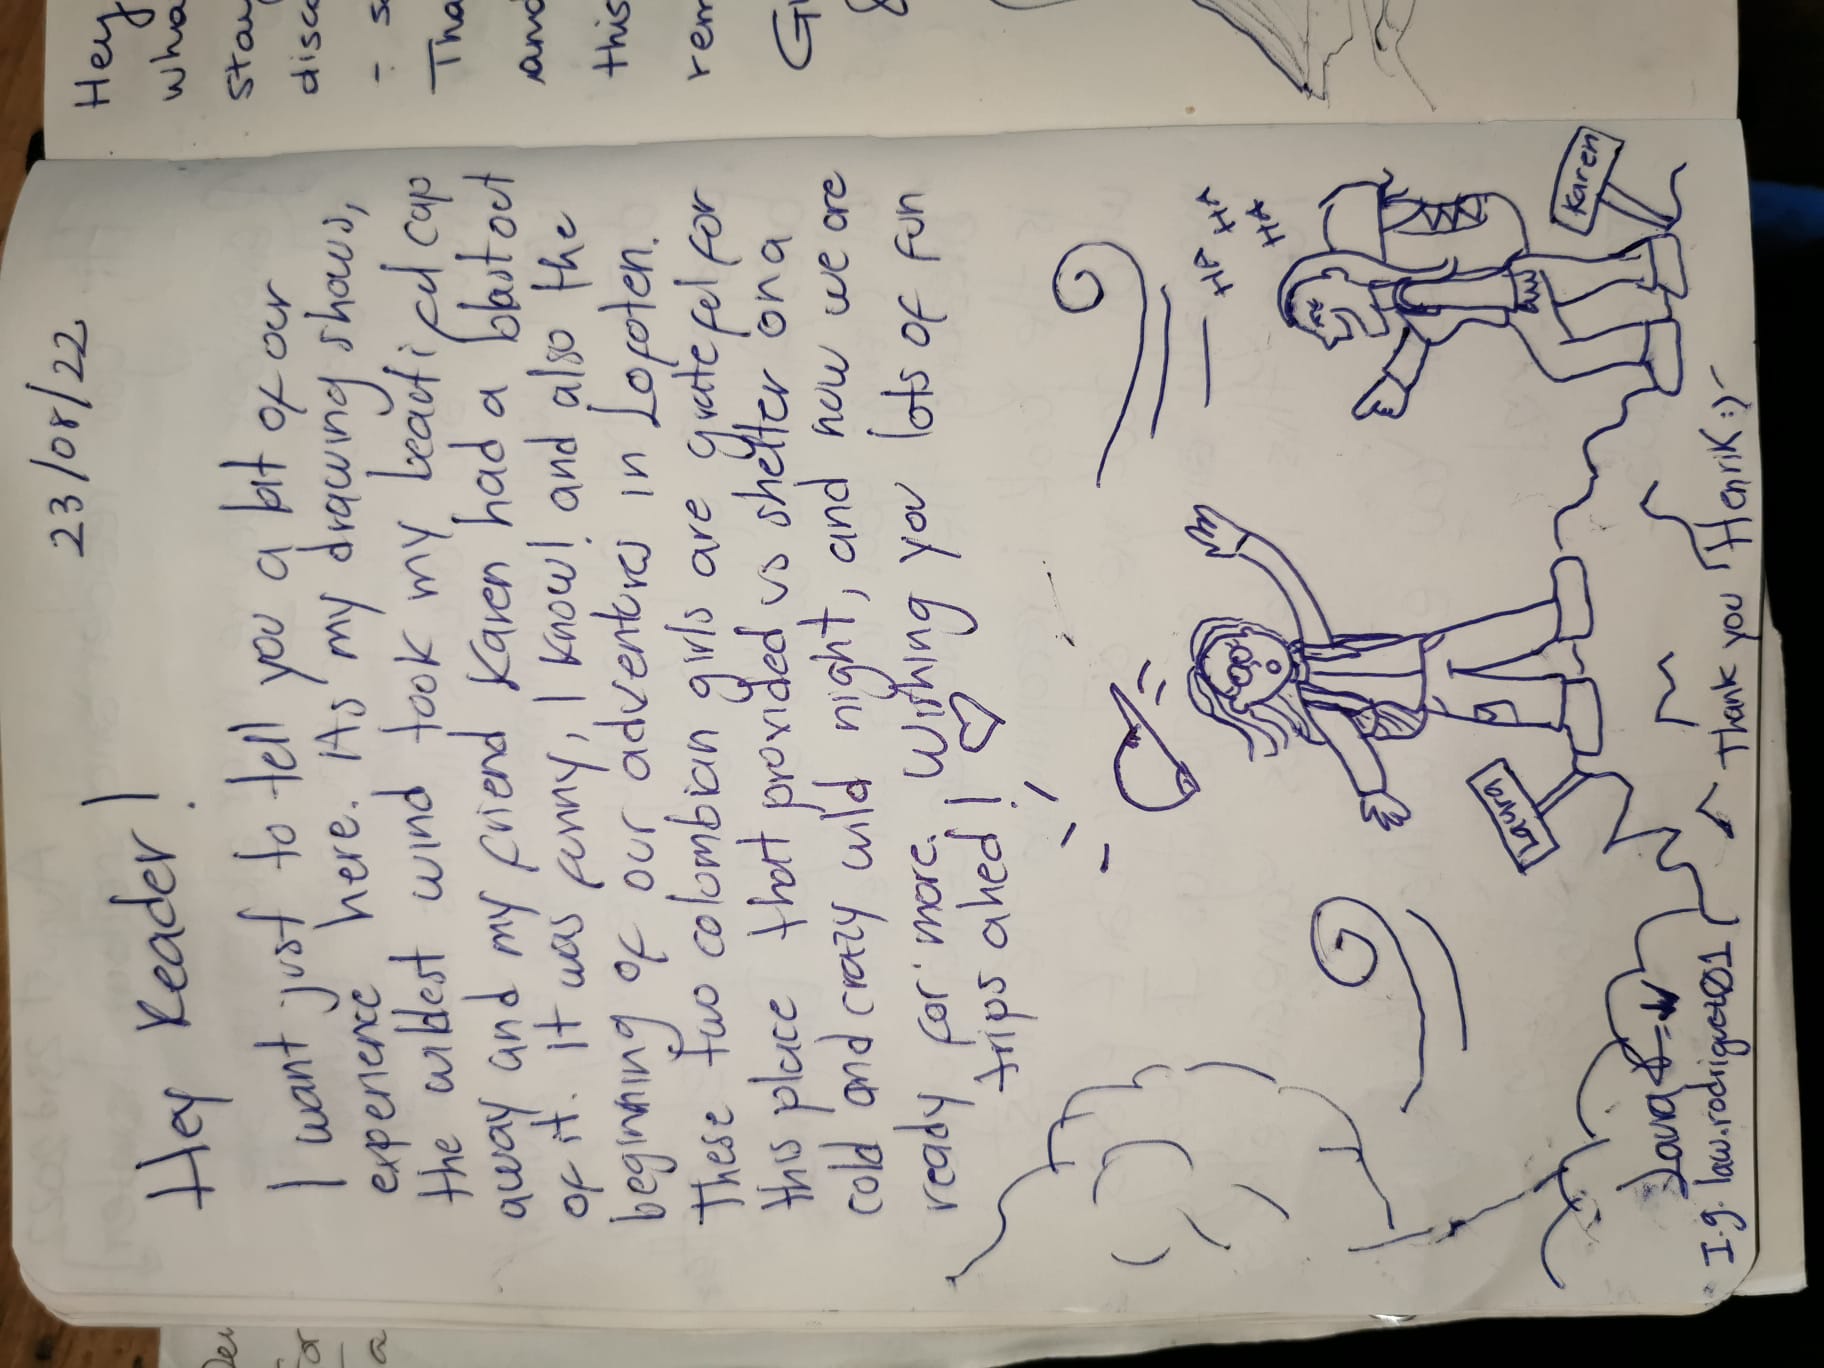 23/08/22
Hey Reader!
I want just to tell you a bit of our
experience here. As my drawing shows,
the wildest wind took my beautiful cap
away and my friend Karen had a blast out
of it. It was funny, I know! and also the
beginning of our adventures in Lofoten.
These two colombian girls are grateful for
this place that provided us shelter on a
cold and crazy wild night, and now we are
ready for more. Wishing you lots of fun
trips ahed! ♡
HA HA
HA
Laura
Karen
Thank you Henrik :)
Laura
I.g. law.rodriguez01
Hey
wha
stay
disc
- s
Tha
and
this
rem
G
&
for
Ta